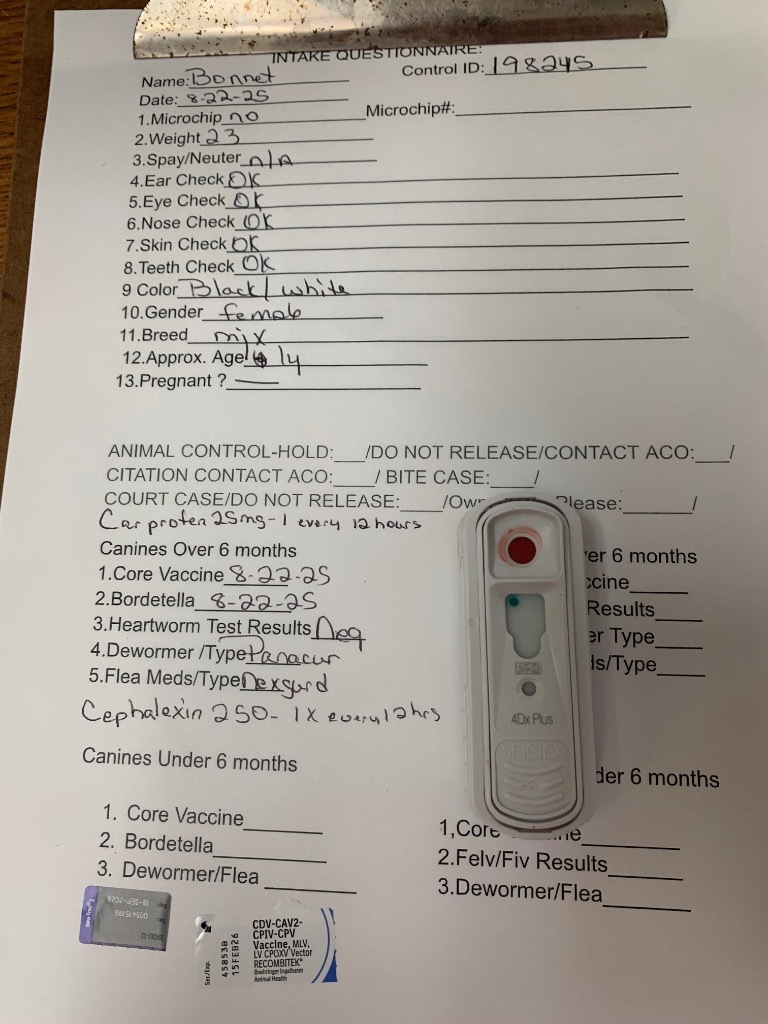 INTAKE QUESTIONNAIRE:
Name: Bonnet Control ID: 198245
Date: 8-22-25
1.Microchip no Microchip#:
2.Weight 23
3.Spay/Neuter n/a
4.Ear Check OK
5.Eye Check OK
6.Nose Check OK
7.Skin Check OK
8.Teeth Check OK
9 Color Black/white
10.Gender female
11.Breed mix
12.Approx. Age 1y
13.Pregnant ? —
ANIMAL CONTROL-HOLD:___/DO NOT RELEASE/CONTACT ACO:___/
CITATION CONTACT ACO:____/ BITE CASE:____/
COURT CASE/DO NOT RELEASE:____/Ow lease:______/
Carprofen 25mg-1 every 12 hours
Canines Over 6 months er 6 months
1.Core Vaccine 8-22-25 ccine
2.Bordetella 8-22-25 Results
3.Heartworm Test Results Neg er Type
4.Dewormer /Type Panacur ds/Type
5.Flea Meds/Type Nexgard
4Dx Plus
snap
Cephalexin 250- 1x every 12hrs
Canines Under 6 months der 6 months
1. Core Vaccine 1,Core ne
2. Bordetella 2.Felv/Fiv Results
3. Dewormer/Flea 3.Dewormer/Flea
18-SEP-2026
Ser/Exp.
45853B
15FEB26
CDV-CAV2-
CPIV-CPV
Vaccine, MLV,
LV CPOXV Vector
RECOMBITEK®
Boehringer Ingelheim
Animal Health